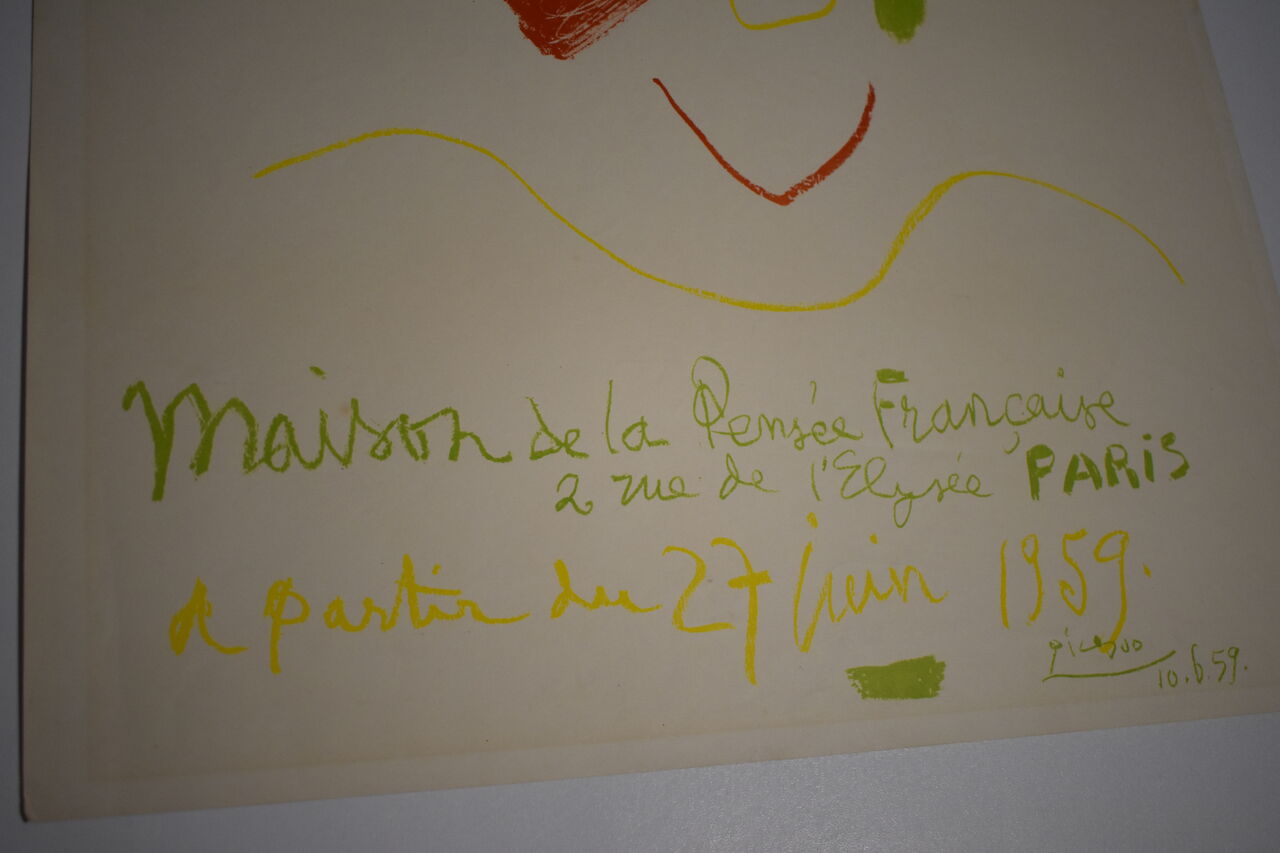 Maison de la Pensée Française
2 rue de l'Elysée PARiS
a partir du 27 juin 1959.
picasso
10.6.59.